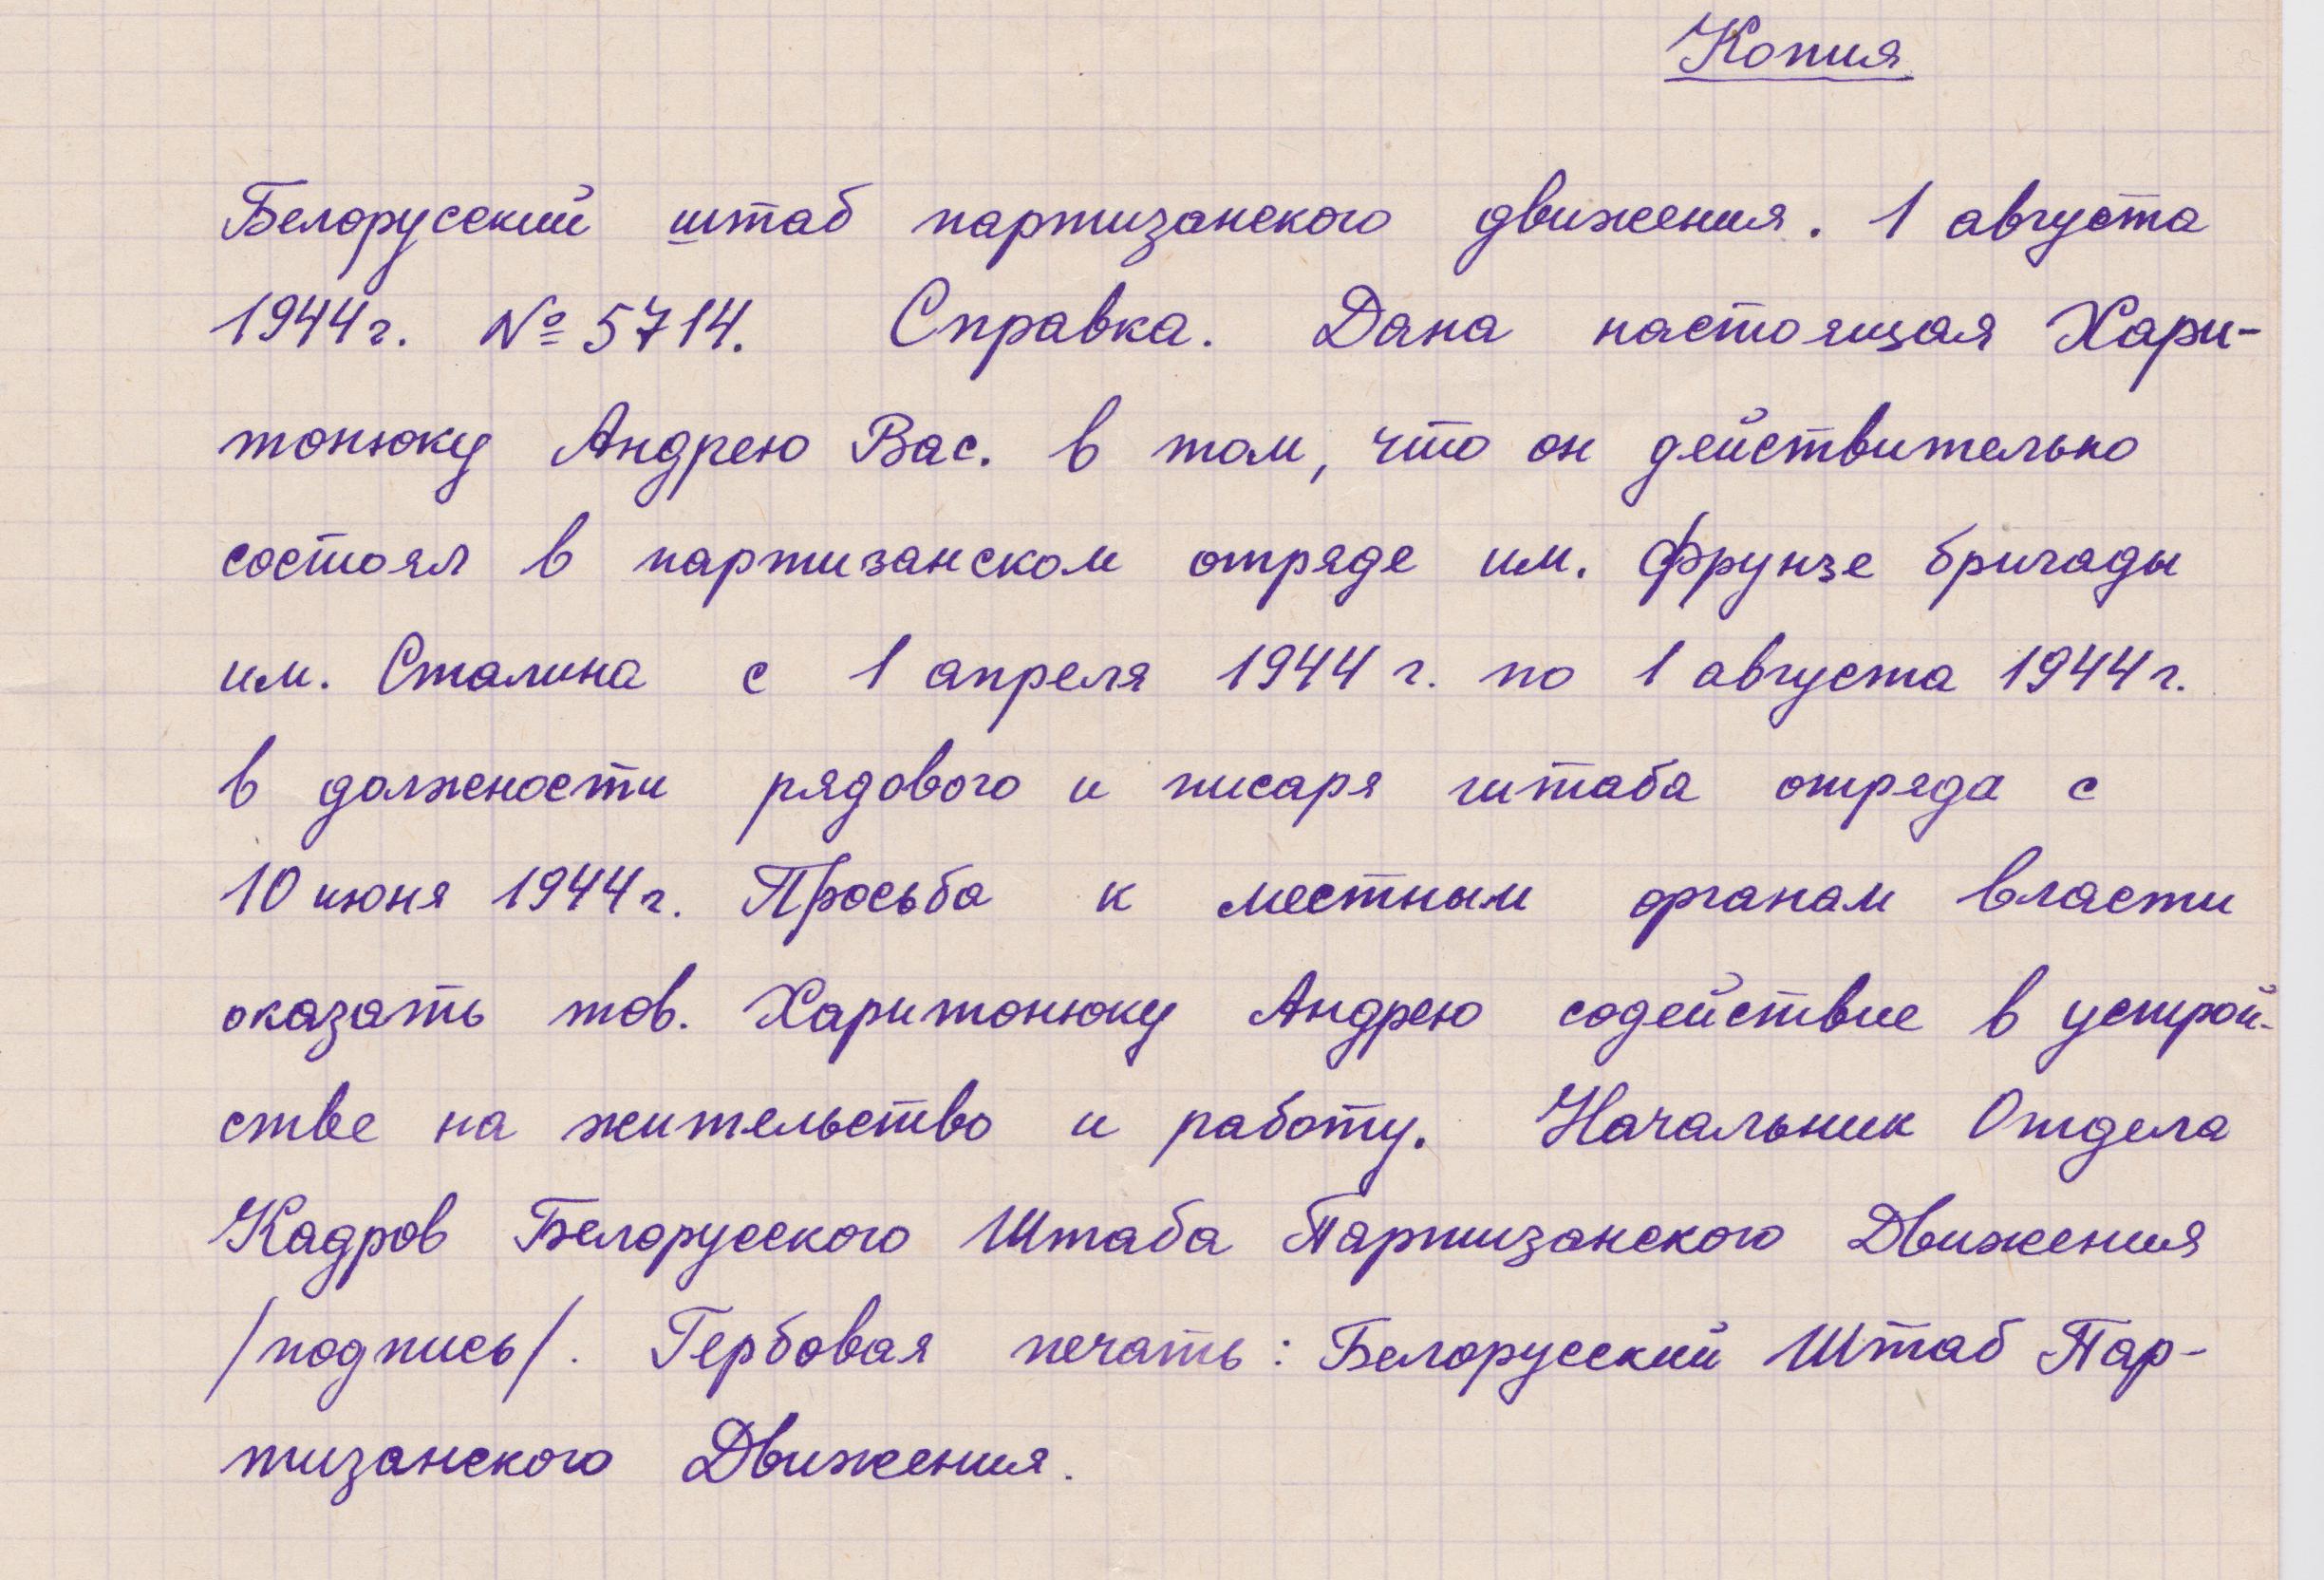 Копия
Белорусский штаб партизанского движения. 1 августа
1944г. № 5714. Справка. Дана настоящая Хари-
тонюку Андрею Вас. в том, что он действительно
состоял в партизанском отряде им. Фрунзе бригады
им. Сталина с 1 апреля 1944 г. по 1 августа 1944 г.
в должности рядового и писаря штаба отряда с
10 июня 1944 г. Просьба к местным органам власти
оказать тов. Харитонюку Андрею содействие в устрой-
стве на жительство и работу. Начальник Отдела
Кадров Белорусского Штаба Партизанского Движения
/подпись/. Гербовая печать: Белорусский Штаб Пар-
тизанского Движения.